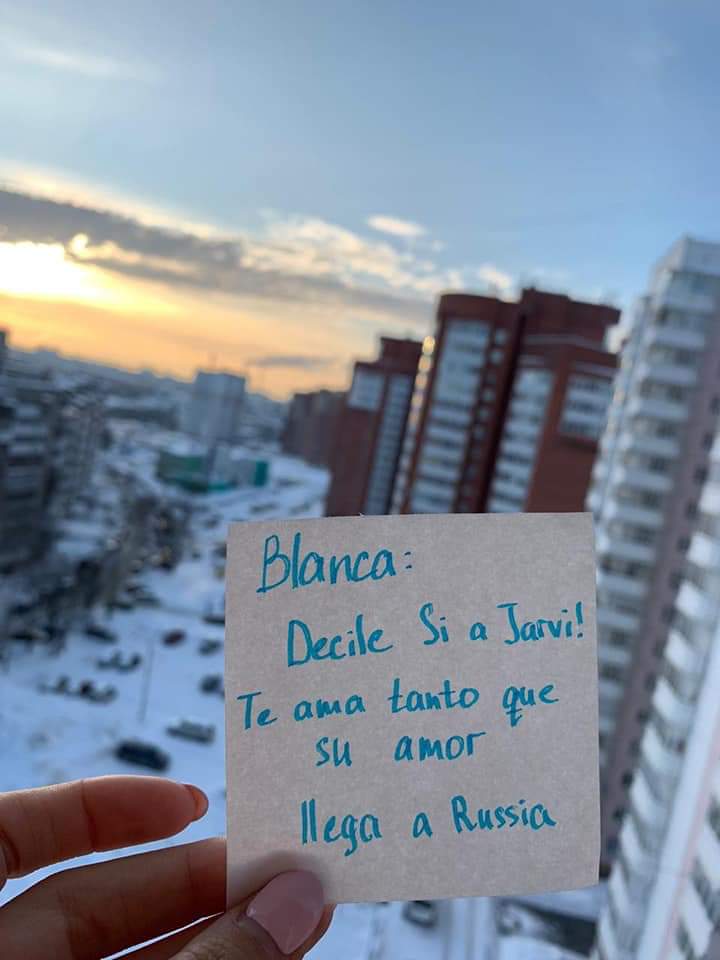 Blanca:
Decile Si a Jarvi!
Te ama tanto que
su amor
llega a Russia